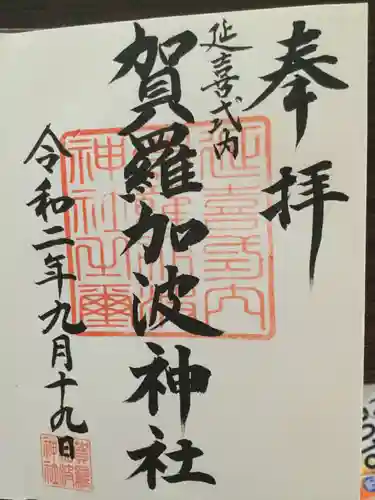 奉拝
延喜式内
賀羅加波神社
令和二年九月十九日
延喜式内
賀羅加波
神社之璽
賀羅
加波
神社